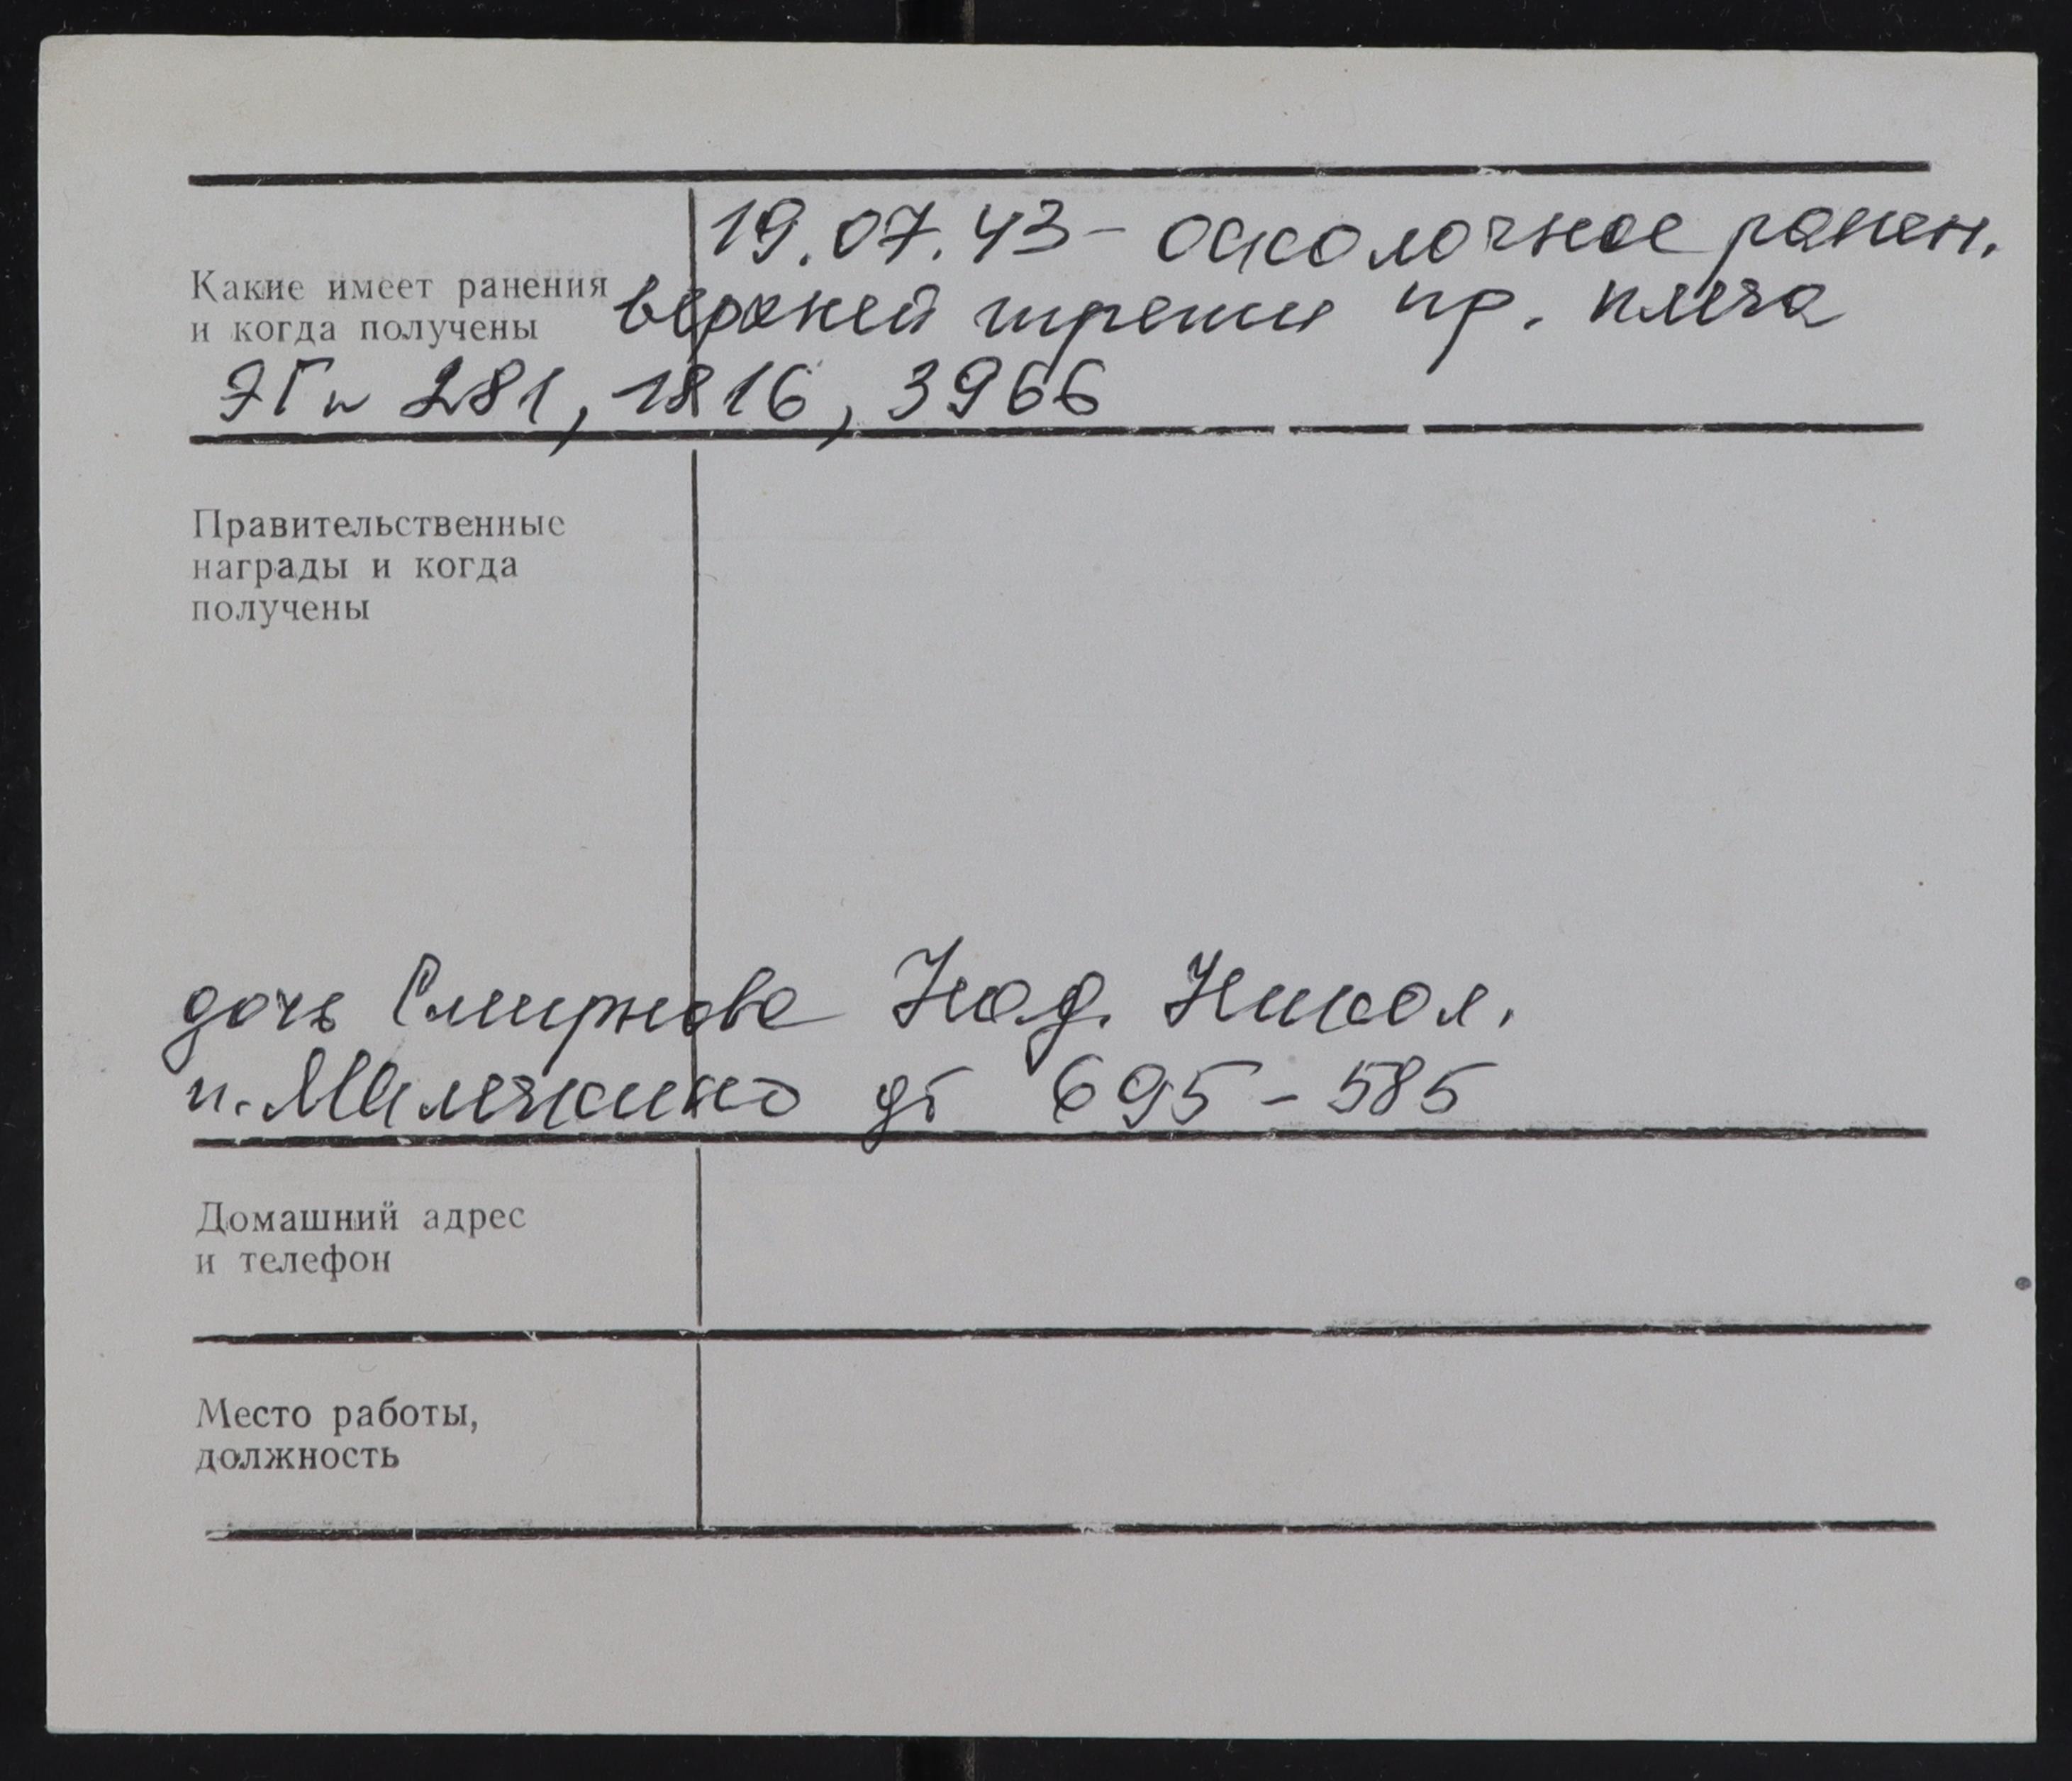 19.07.43 - осколочное ранен.
Какие имеет ранения
и когда получены
верхней трети пр. плеча
ЭГ 281, 1816, 3966
Правительственные
награды и когда
получены
дочь Смирнова Над. Никол.
п. Малечкино д5 695-585
Домашний адрес
и телефон
Место работы,
должность